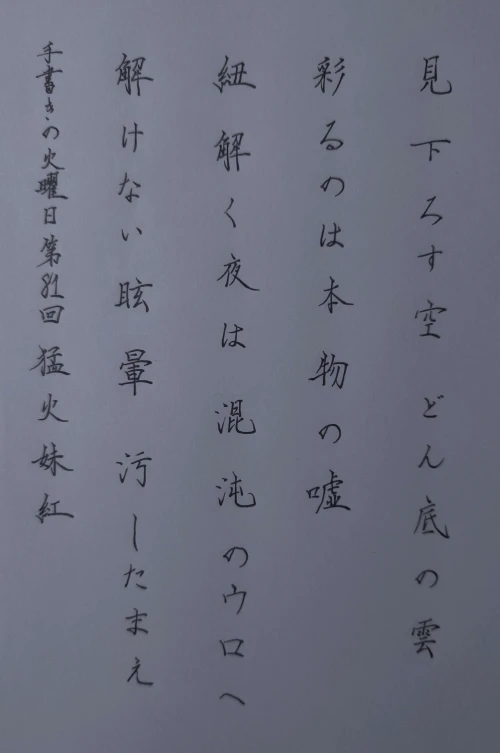 見下ろす空 どん底の雲
彩るのは本物の嘘
紐解く夜は混沌のウロへ
解けない眩暈 汚したまえ
手書きの火曜日第81回 猛火妹紅